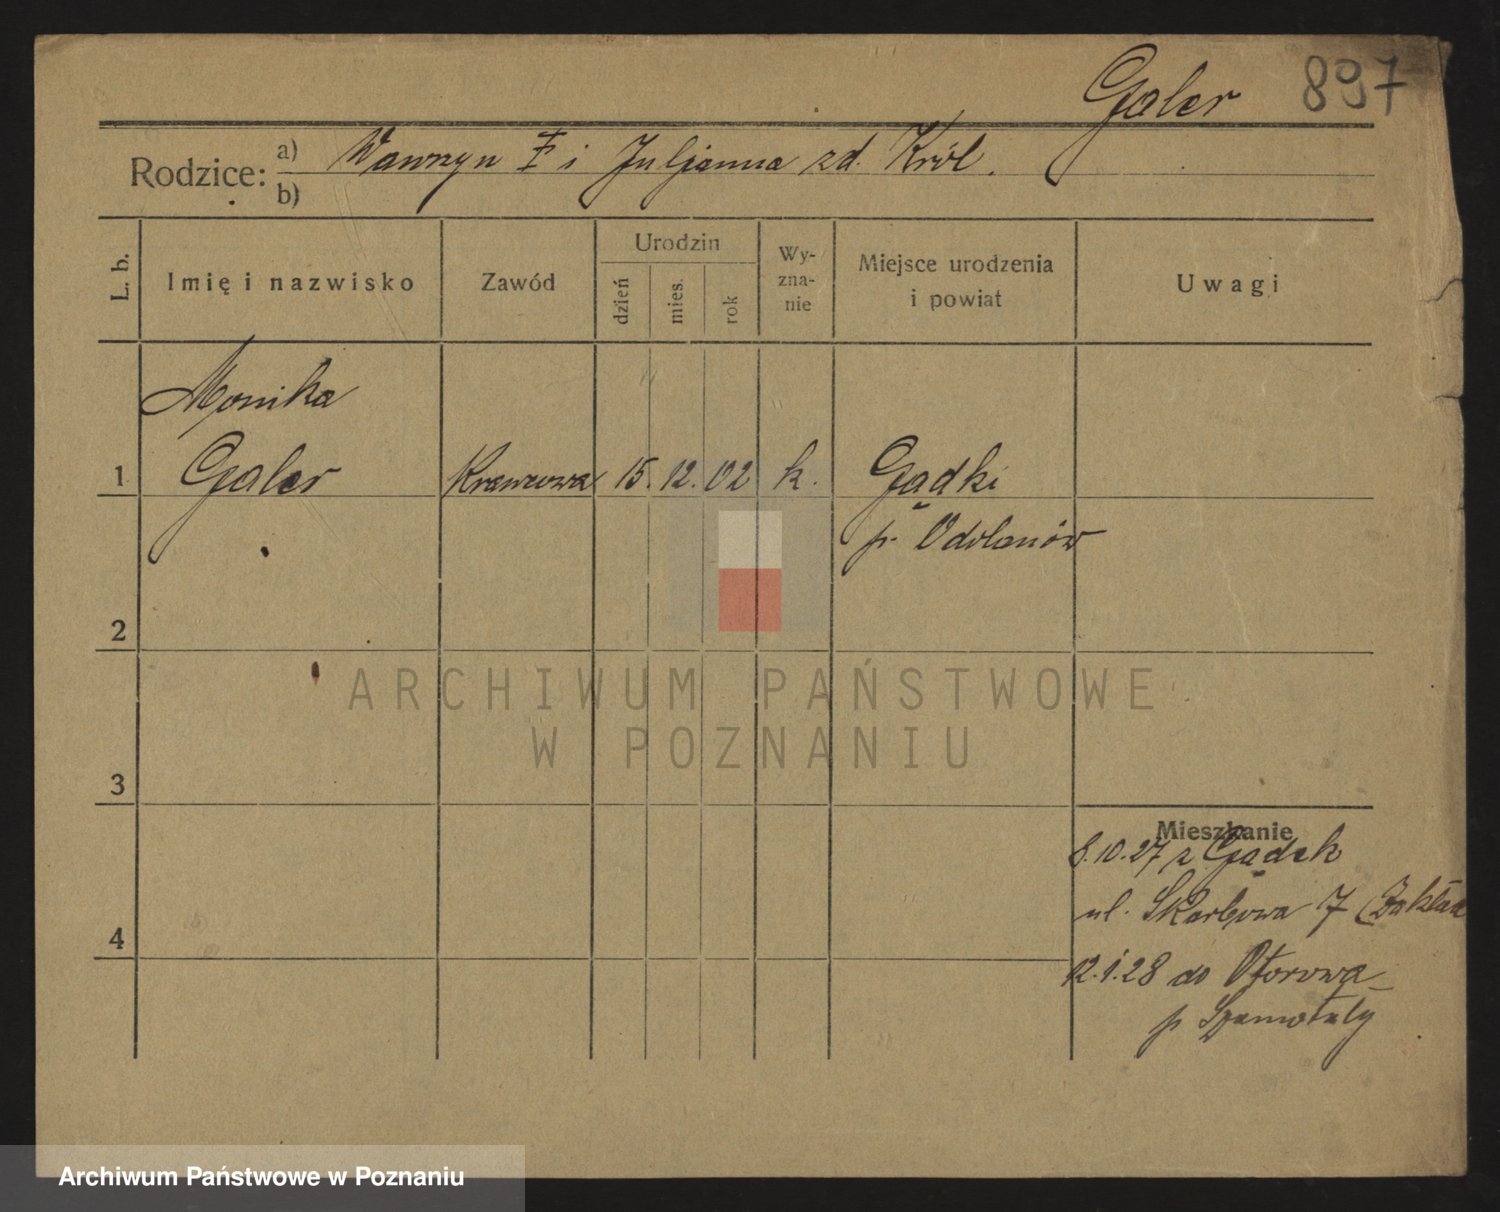 Galer 897
Rodzice: a) Wawrzyn i Juljanna zd. Król.
b)
L. b.
Imię i nazwisko
Zawód
Urodzin
dzień
mies.
rok
Wy-
zna-
nie
Miejsce urodzenia
i powiat
Uwagi
Monika
1 Galer Krawcowa 15. 12. 02 k. Gądki
p. Odolanów
2
3
4
Mieszkanie
8.10.27 z Gądek
ul. Skarbowa 7 (Zakład
12.1.28 do Otorowa
p Szamotuły
ARCHIWUM PAŃSTWOWE
W POZNANIU
Archiwum Państwowe w Poznaniu